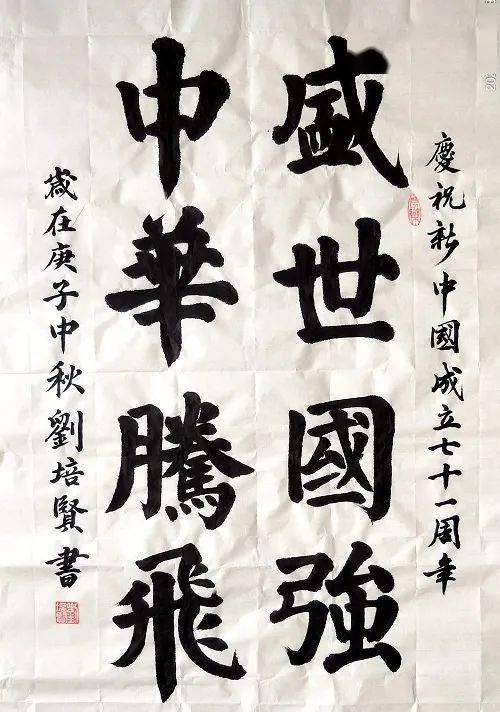 慶祝新中國成立七十一周年
盛世國強
中華騰飛
歲在庚子中秋劉培賢書